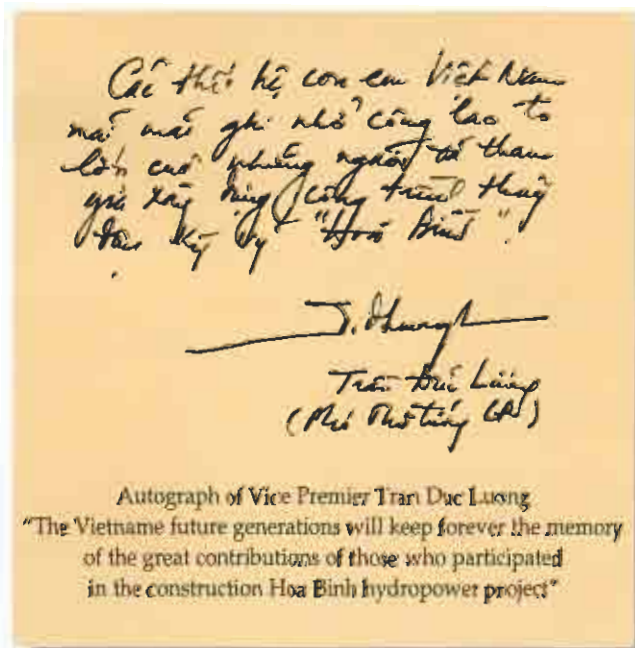 Các thế hệ con em Việt Nam
mãi mãi ghi nhớ công lao to
lớn của những người đã tham
gia xây dựng công trình thủy
điện kỳ vỹ "Hòa Bình".
Trần Đức Lương
(Phó Thủ tướng CP)
Autograph of Vice Premier Tran Duc Luong
"The Vietname future generations will keep forever the memory
of the great contributions of those who participated
in the construction Hoa Binh hydropower project"